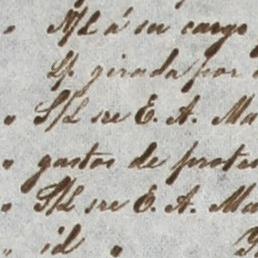 " N/L á su cargo
L/. girada por
" S/L sre E. A. Ma
" gastos de protes
" S/L sre E. A. Ma
" id "